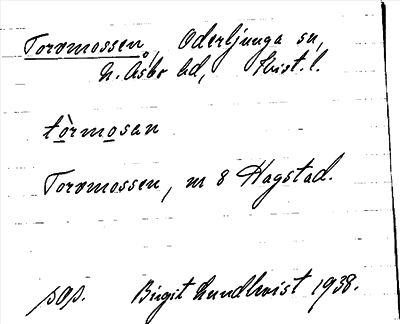 Torvmossen, Oderljunga sn,
N. Åsbo hd, Krist. l.
tòrmosan
Torvmossen, m 8 Hagstad.
sos. Birgit Lundkvist 1938.